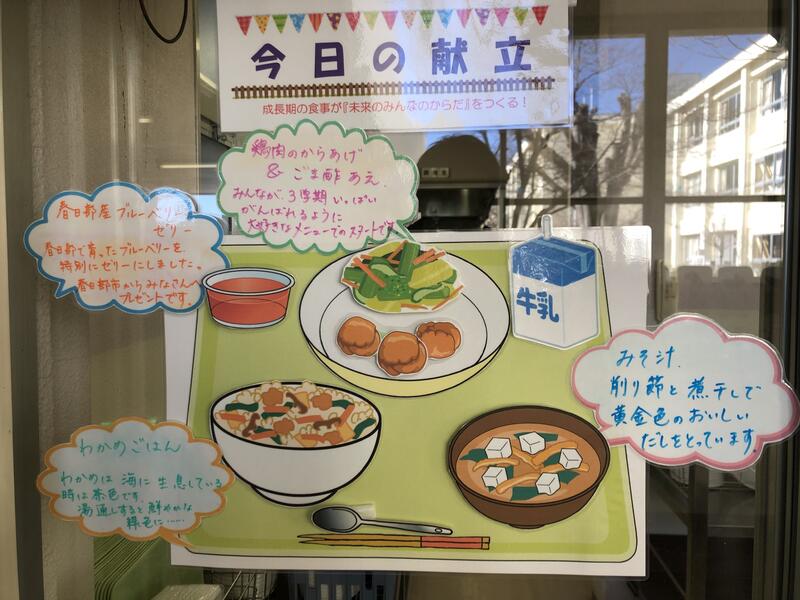 今日の献立
成長期の食事が『未来のみんなのからだ』をつくる！
鶏肉のからあげ
& ごま酢あえ
みんなが、3学期いっぱい
がんばれるように
大好きなメニューでのスタートです
春日部産ブルーベリー
ゼリー
春日部で育ったブルーベリーを
特別にゼリーにしました。
春日部市からみなさんへ
プレゼントです。
牛乳
みそ汁
削り節と煮干しで
黄金色のおいしい
だしをとっています。
わかめごはん
わかめは海に生息している
時は茶色です
湯通しすると鮮やかな
緑色に……